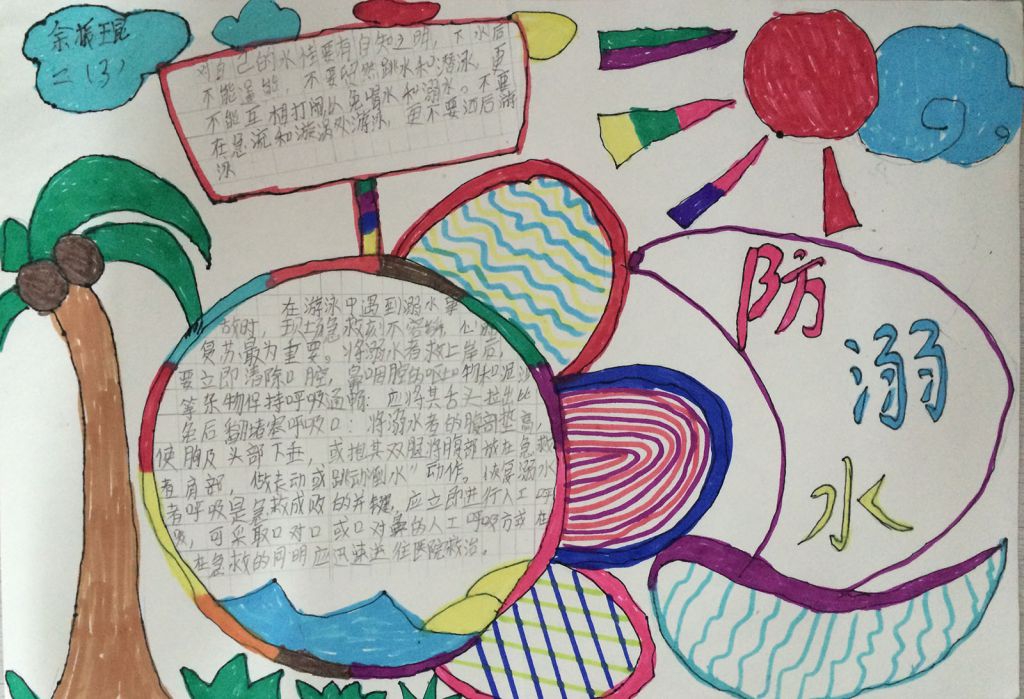 二(3)
对自己的水性要有自知之明，下水后
不能逞能，不要贸然跳水和潜泳，更
不能互相打闹以免喝水和溺水。不要
在急流和漩涡处游泳，更不要酒后游
泳
防
溺
水
在游泳中遇到溺水事
故时，现场急救刻不容缓，心肺
复苏最为重要。将溺水者救上岸后，
要立即清除口腔，鼻咽腔的呕吐物和泥沙
等杂物保持呼吸通畅；应将其舌头拉出以
免后翻堵塞呼吸口；将溺水者的腹部垫高，
使胸及头部下垂，或抱其双腿将腹部放在急救
者肩部，做走动或跳动倒水”动作。恢复溺水
者呼吸是急救成败的关键，应立即进行人工呼
吸，可采取口对口或口对鼻的人工呼吸方或在
在急救的同明应迅速送往医院救治。